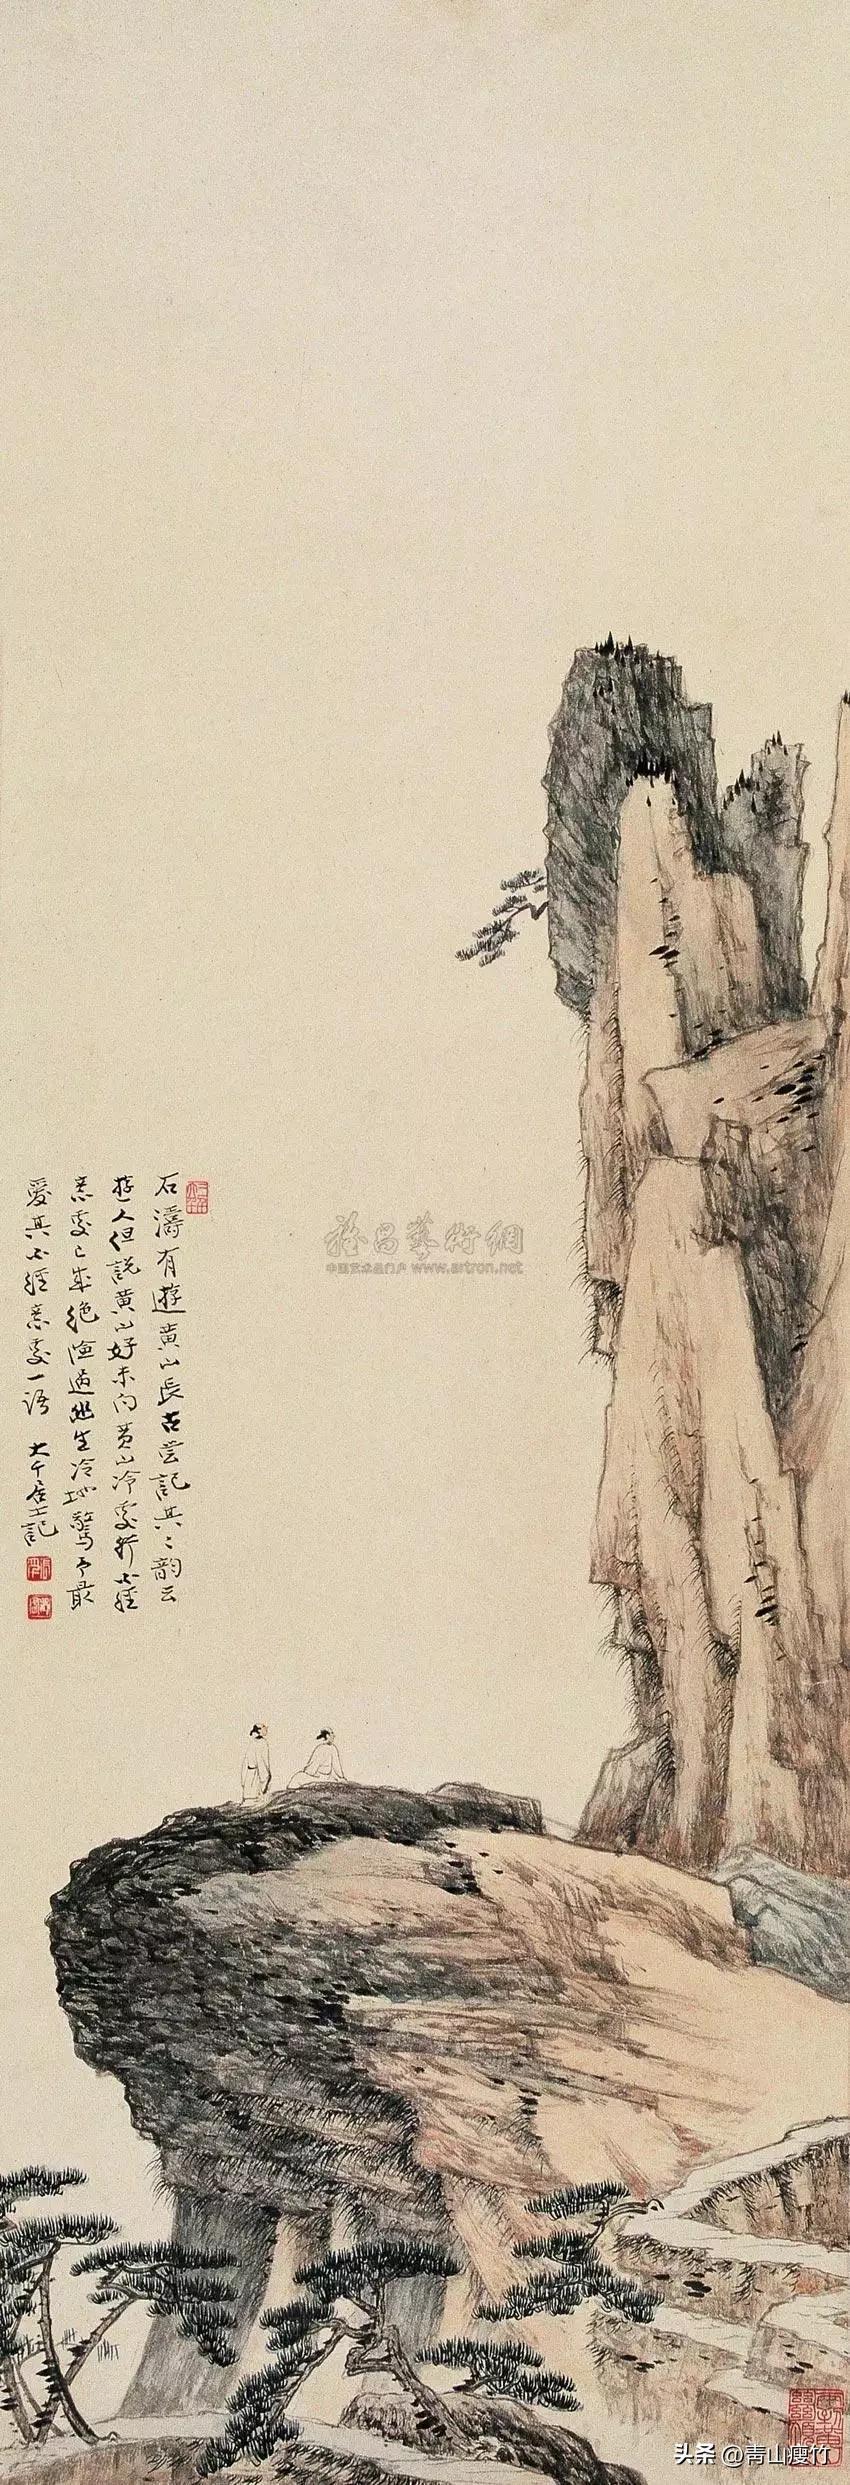 石濤有遊黃山長古嘗記其二韵云
遊人但說黃山好未向黃山冷處行火經
意處已成絕險過幽生冷地驚予最
愛其火經意處一語 大千居士記
雅昌藝術網
中国艺术品门户 www.artron.net
头条 @青山瘦竹